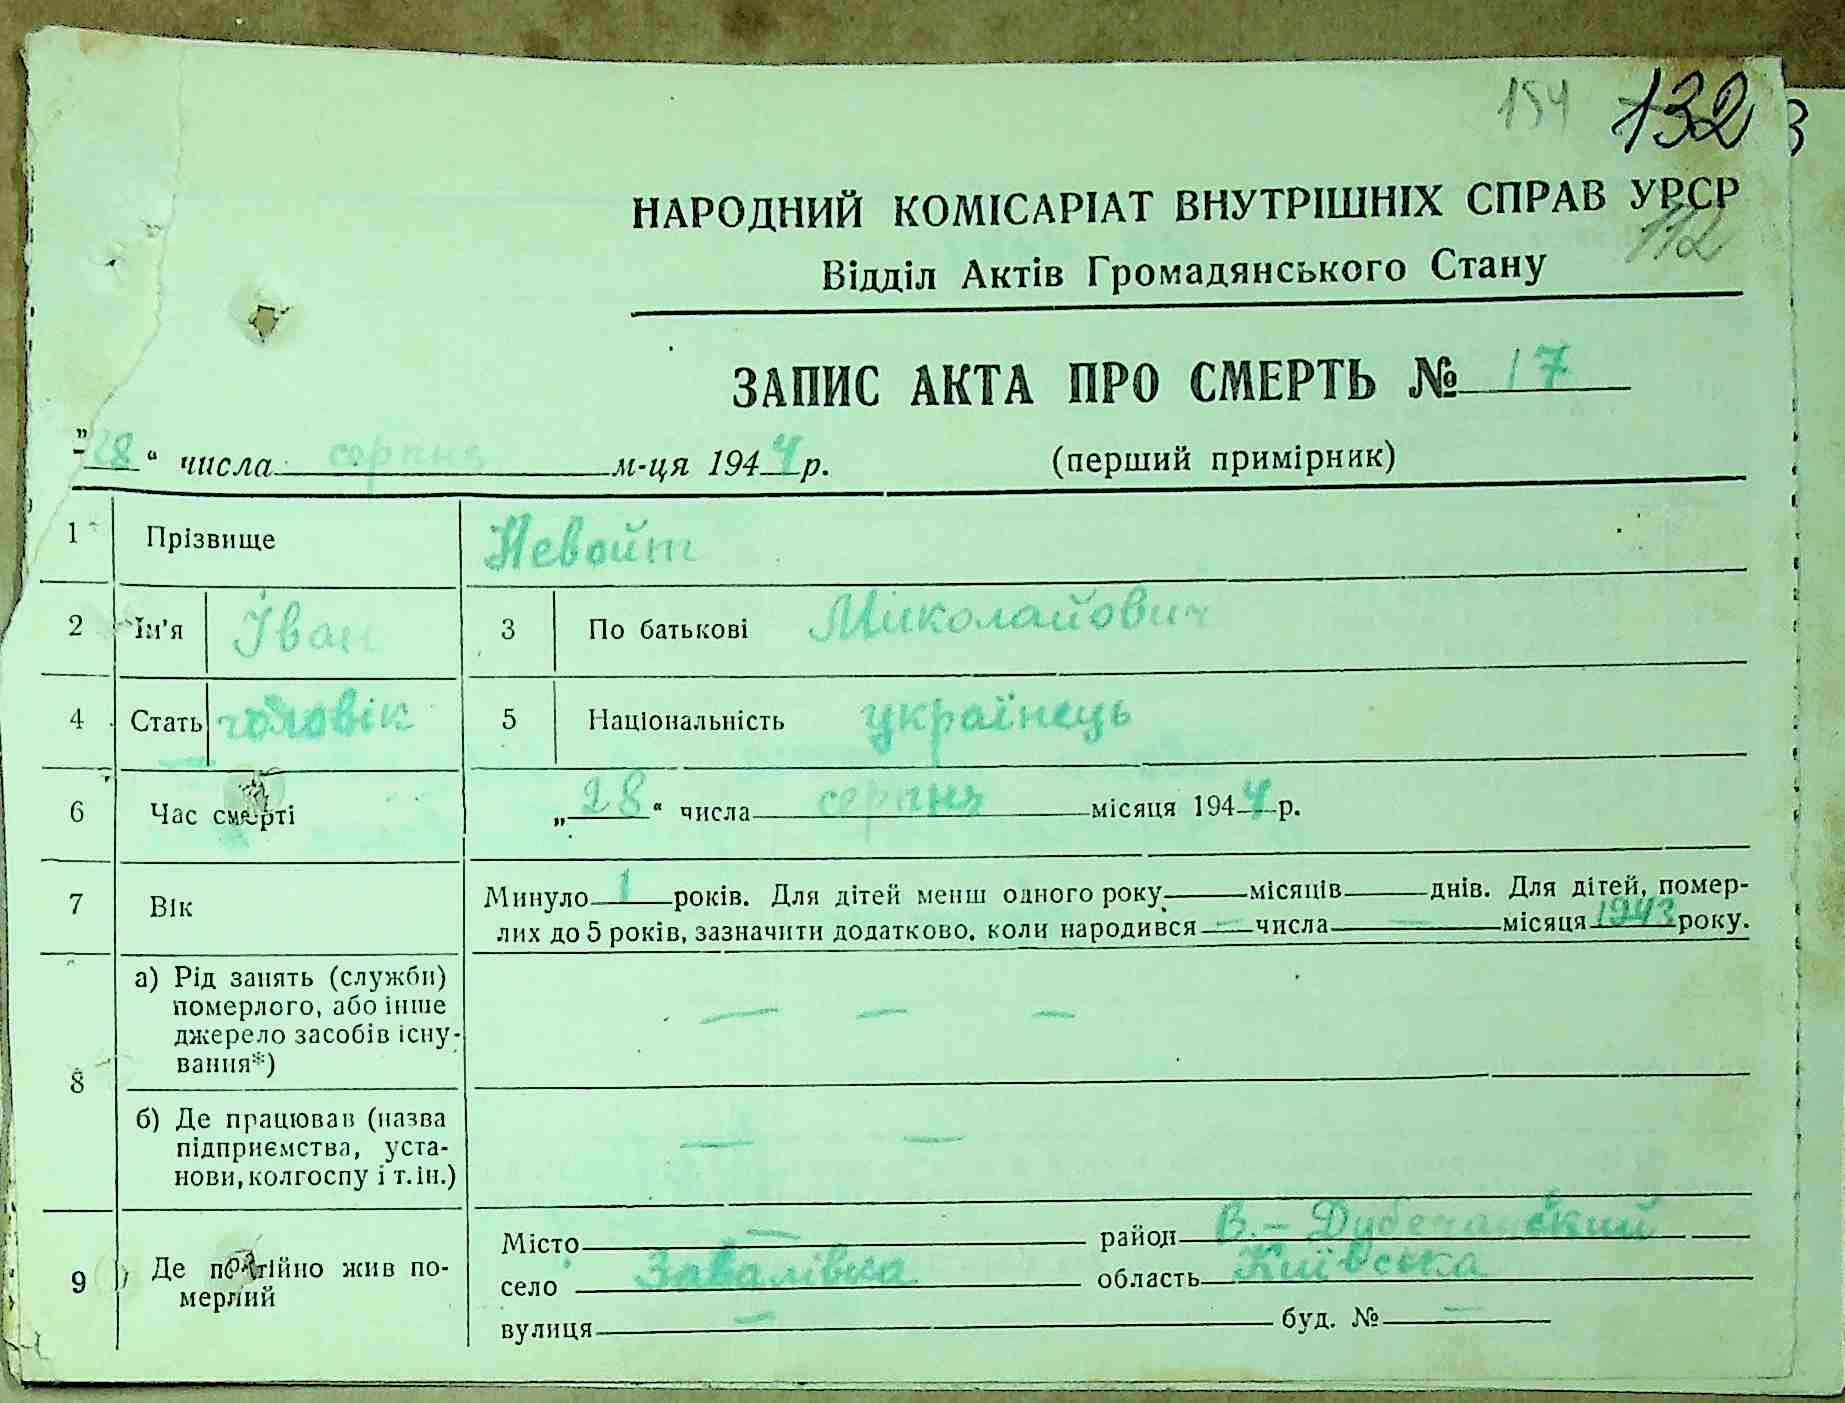 154 132
3
НАРОДНИЙ КОМІСАРІАТ ВНУТРІШНІХ СПРАВ УРСР
112
Відділ Актів Громадянського Стану
ЗАПИС АКТА ПРО СМЕРТЬ № 17
„28“ числа серпня м-ця 1944 р. (перший примірник)
1 Прізвище Невойт
2 Ім'я Іван 3 По батькові Миколайович
4 Стать чоловік 5 Національність українець
6 Час смерті „28“ числа серпня місяця 1944 р.
7 Вік Минуло 1 років. Для дітей менш одного року місяців днів. Для дітей, помер-
лих до 5 років, зазначити додатково, коли народився — числа — місяця 1943 року.
8 а) Рід занять (служби)
померлого, або інше
джерело засобів існу-
вання*) — — —
б) Де працював (назва
підприємства, уста-
нови, колгоспу і т. ін.) — —
9 Де постійно жив по-
мерлий
Місто — район В.-Дубечанський
село Завалівка область Київська
вулиця — буд. № —